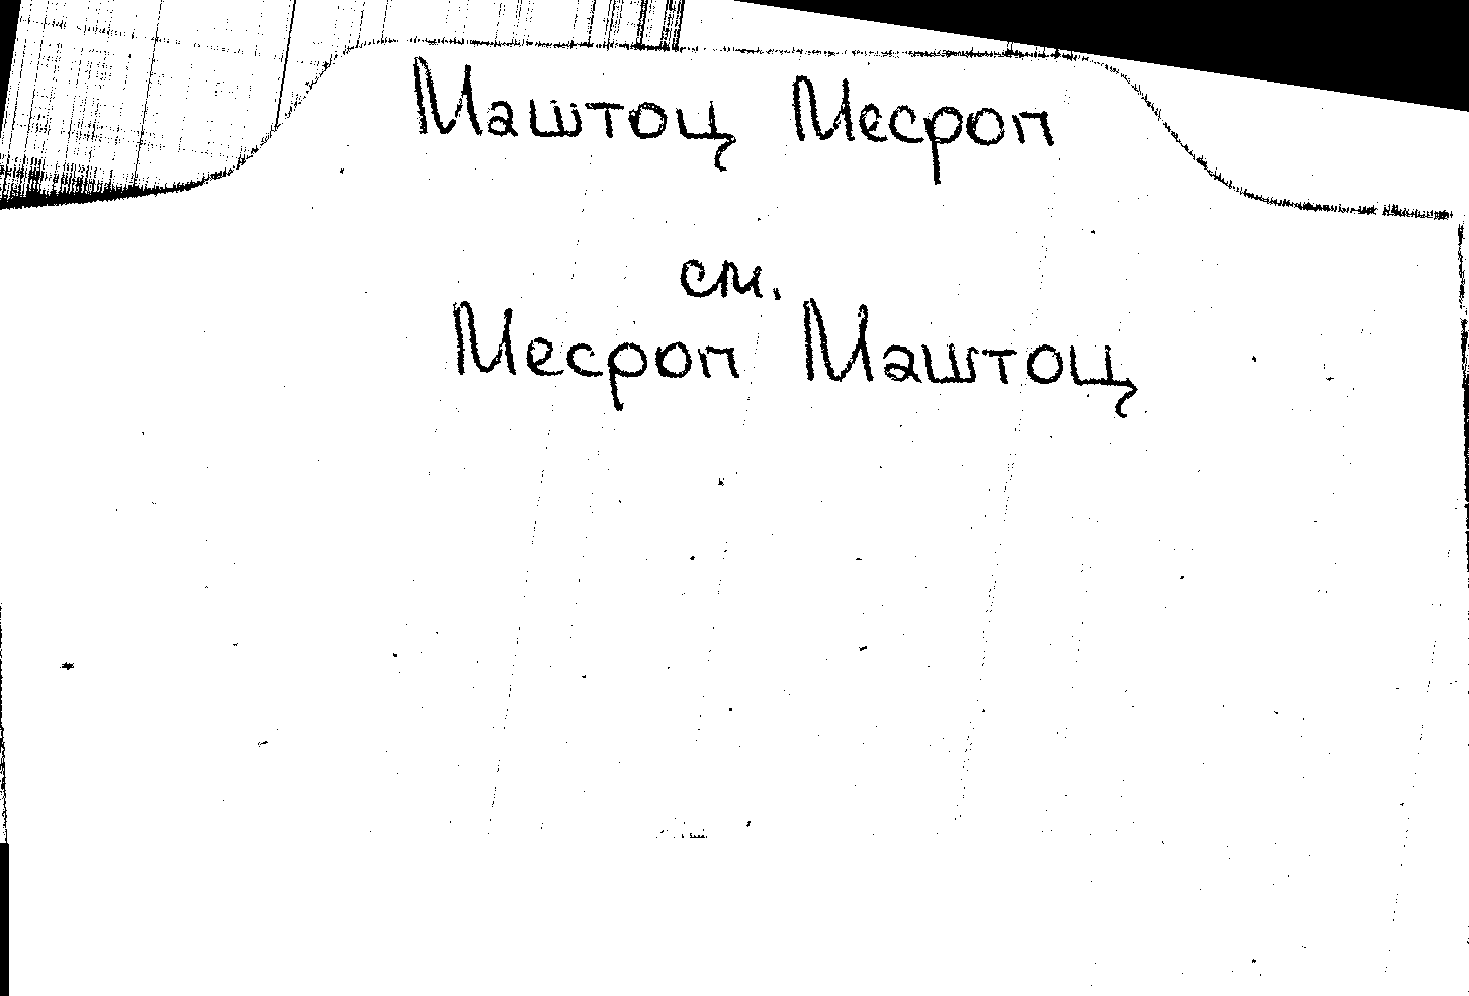 Маштоц Месроп
см.
Месроп Маштоц